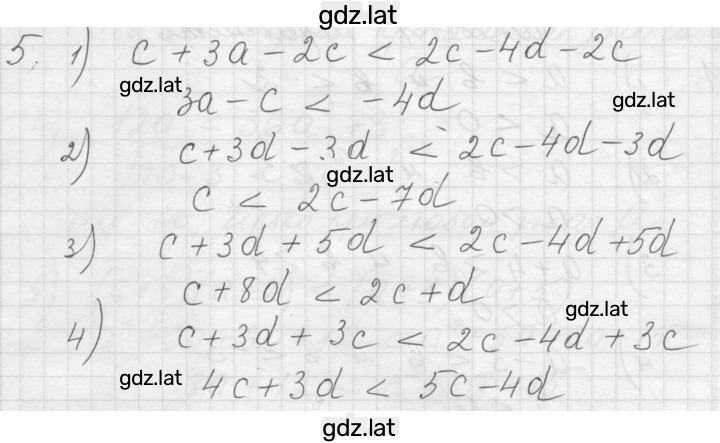 gdz.lat
5. 1) c + 3a - 2c < 2c - 4d - 2c
gdz.lat
3a - c < -4d gdz.lat
2) c + 3d - 3d < 2c - 4d - 3d
gdz.lat
c < 2c - 7d
3) c + 3d + 5d < 2c - 4d + 5d
c + 8d < 2c + d
gdz.lat
4) c + 3d + 3c < 2c - 4d + 3c
gdz.lat 4c + 3d < 5c - 4d
gdz.lat